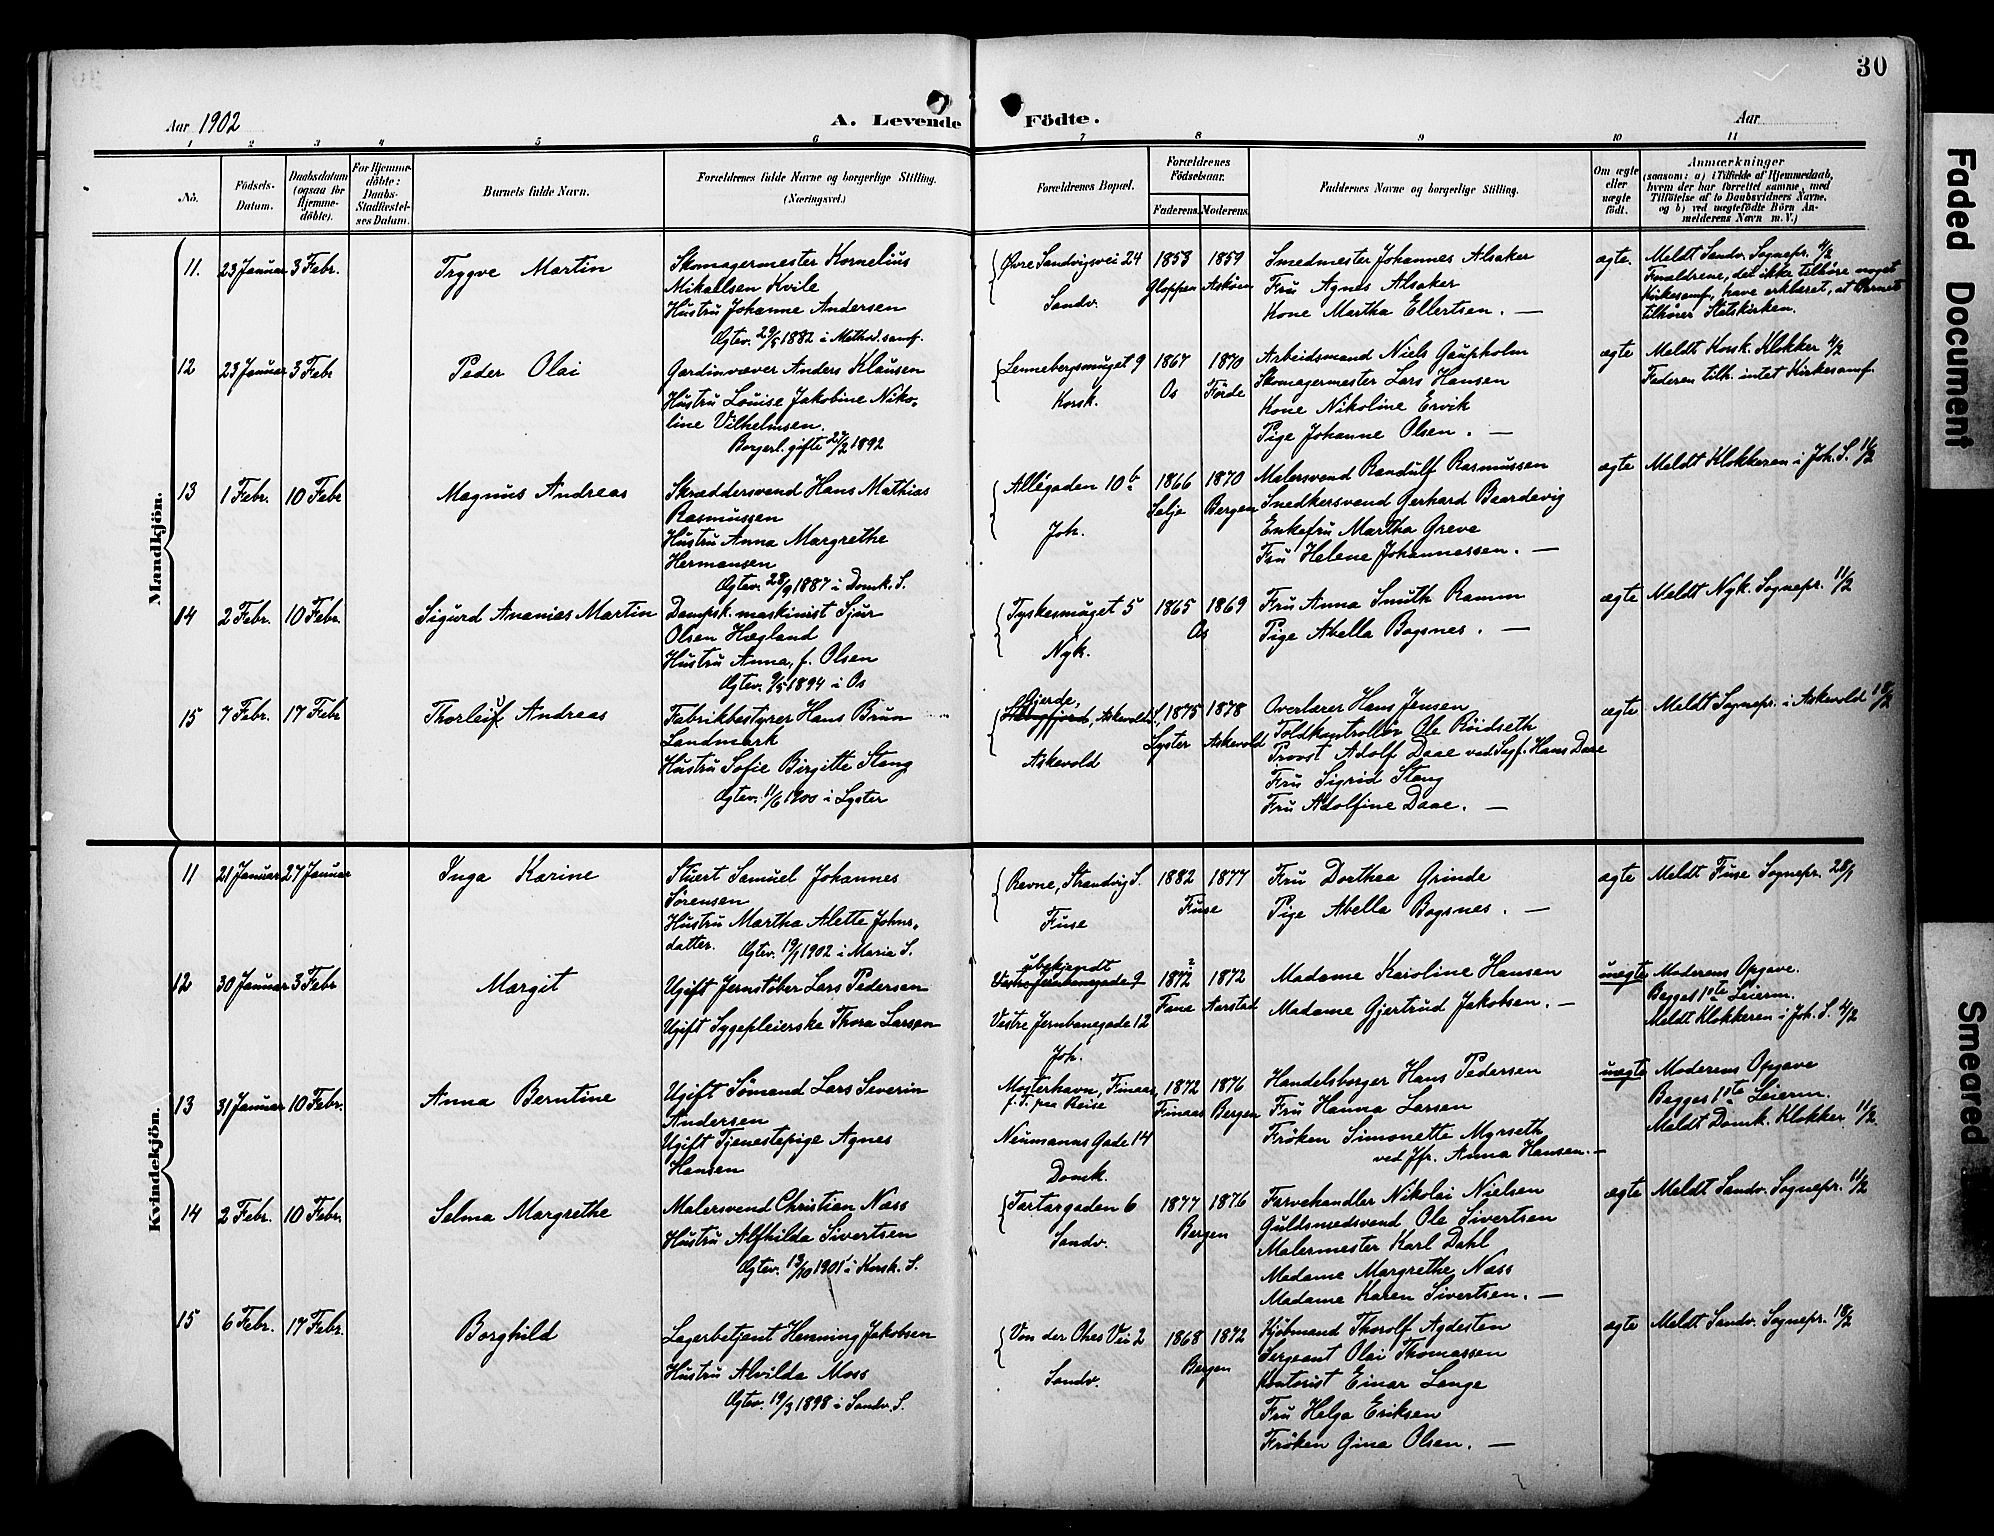 30
Aar 1902
A. Levende Födte.
Aar
1 2 3 4 5 6 7 8 9 10 11
No.
Födsels-Datum.
Daabsdatum (ogsaa for Hjemme-döbte).
For Hjemme-döbte: Daabs-Stadfæstel-ses Datum.
Barnets fulde Navn.
Forældrenes fulde Navne og borgerlige Stilling. (Næringsvei.)
Forældrenes Bopæl.
Forældrenes Födselsaar.
Faderens. Moderens.
Faddernes Navne og borgerlige Stilling.
Om ægte eller uægte födt.
Anmærkninger
(saasom: a) i Tilfælde af Hjemmedaab, hvem der har forrettet samme, med Tilföielse af to Daabsvidners Navne, og b) ved uægtefödte Börn An-melderens Navn m. V.)
Mandkjön.
11. 23 Januar 3 Febr. Trygve Martin
Skomagermester Kornelius
Mikaelsen Kvile
Hustru Johanne Andersen
Ægtev. 29/5 1882 i Method. samf.
Øvre Sandvigsvei 24
Sandv.
1853 1859
Gloppen Askøen
Smedmester Johannes Alsaker
Fru Agnes Alsaker
Kone Martha Ellertsen. —
ægte.
Meldt Sandv. Sognepr. 4/2
Forældrene, der ikke tilhøre noget
Kirkesamf., have erklæret, at Barnet
tilhører Statskirken.
12 23 Januar 3 Febr Peder Olai
Gardinvæver Anders Klausen
Hustru Louise Jakobine Niko-
line Vilhelmsen.
Borgerl. gifte 27/2 1892
Lennebergsmuget 9
Korsk.
1867 1870
Os Førde
Arbeidsmand Niels Gaupholm
Skomagermester Lars Hansen
Kone Nikoline Ervik
Pige Johanne Olsen. —
ægte
Meldt Korsk. Klokker 4/2
Faderen tilh. intet Kirkesamf.
13 1 Febr. 10 Febr Magnus Andreas
Skræddersvend Hans Mathias
Rasmussen
Hustru Anna Margrethe
Hermansen
Ægtev. 28/9 1887 i Domk. S.
Allégaden 10 b
Joh.
1866 1870
Selje Bergen
Malersvend Randulf Rasmussen
Snedkersvend Gerhard Baardevig
Enkefru Martha Greve
Fru Helene Johannessen. —
ægte
Meldt Klokkeren i Joh. S. 11/2
14 2 Febr. 10 Febr. Sigurd Ananias Martin
Dampsk. maskinist Sjur
Olsen Hægland
Hustru Anna, f. Olsen
Ægtev. 9/5 1894 i Os
Tyskesmuget 5
Nyk.
1865 1869
Os
Fru Anna Smuth Ramm
Pige Abella Bogsnes. —
ægte
Meldt Nyk. Sognepr. 11/2
15 7 Febr. 17 Febr Thorleif Andreas
Fabrikbestyrer Hans Brun
Landmark
Hustru Sofie Birgitte Stang
Ægtev. 11/6 1900 i Lyster
Gjerde,
Askevolds S.,
Askevold
1875 1878
Lyster Askevold
Overlærer Hans Jensen
Toldkontrollør Ole Røidseth
Provst Adolf Daae ved Sogf. Hans Daae
Fru Sigrid Stang
Fru Adolfine Daae. —
ægte
Meldt Sognepr. i Askevold 18/2
Kvindekjön.
11 21 Januar 27 Januar Inga Karine
Stuert Samuel Johannes
Sørensen
Hustru Martha Alette Johns-
datter. Ægtev. 19/1 1902 i Maria S.
Revne, Strandvig S.
Fuse
1882 1877
Fuse
Fru Dorthea Grinde
Pige Abella Bogsnes. —
ægte
Meldt Fuse Sognepr. 28/1
12 30 Januar 3 Febr Margit
Ugift Jernstøber Lars Pedersen
Ugift Sygepleierske Thora Larsen
ubekjendt
Vestre Jernbanegade 9
Vestre Jernbanegade 12
Joh.
1872 1872
Fana Aarstad
Madame Karoline Hansen
Madame Gjertrud Jakobsen. —
uægte
Moderens Opgave.
Begges 1ste Leierm.
Meldt Klokkeren i Joh. S. 4/2
13 31 Januar 10 Febr. Anna Berntine
Ugift Sømand Lars Severin
Andersen
Ugift Tjenestepige Agnes
Hansen
Mosterhavn, Finaas
f. T. paa Reise
Neumanns Gade 14
Domk.
1872 1876
Finaas Bergen
Handelsborger Hans Pedersen
Fru Hanna Larsen
Frøken Simonette Myrseth
ved Jfr. Anna Hansen. —
uægte
Moderens Opgave
Begges 1ste Leierm.
Meldt Domk. Klokker 11/2
14 2 Febr. 10 Febr. Selma Margrethe
Malersvend Christian Næss
Hustru Alfhilda Sivertsen
Ægtev. 13/10 1901 i Korsk. S.
Tartargaden 6
Sandv.
1877 1876
Bergen
Farvehandler Nikolai Nielsen
Guldsmedsvend Ole Sivertsen
Malermester Karl Dahl
Madame Margrethe Næss
Madame Karen Sivertsen. —
ægte
Meldt Sandv. Sognepr. 11/2
15 6 Febr. 17 Febr. Borghild
Lagerbetjent Henning Jakobsen
Hustru Alvilda Moss
Ægtev. 19/3 1898 i Sandv. S.
Von der Ohes Vei 2
Sandv.
1868 1872
Bergen
Kjøbmand Thorolf Agdesten
Sergeant Olai Thomassen
Kontorist Einar Lange
Fru Helga Eriksen
Frøken Gina Olsen. —
ægte
Meldt Sandv. Sognepr. 18/2
Faded Document
Smeared